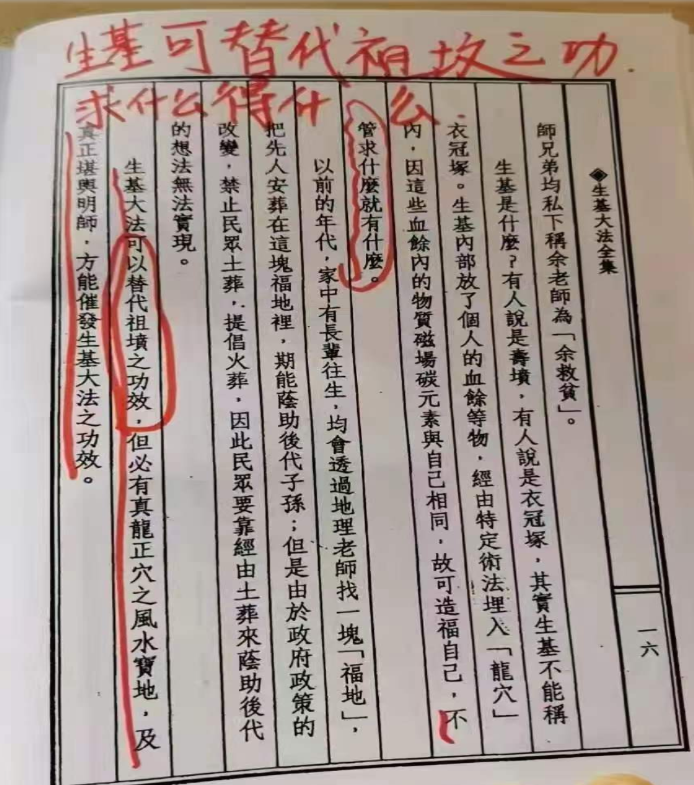 生基可替代祖坟之功
求什么得什么
◈生基大法全集
一六
師兄弟均私下稱余老師為「余救貧」。
生基是什麼？有人說是壽墳，有人說是衣冠塚，其實生基不能稱
衣冠塚。生基內部放了個人的血餘等物，經由特定術法埋入「龍穴」
內，因這些血餘內的物質磁場碳元素與自己相同，故可造福自己，不
管求什麼就有什麼。
以前的年代，家中有長輩往生，均會透過地理老師找一塊「福地」，
把先人安葬在這塊福地裡，期能蔭助後代子孫；但是由於政府政策的
改變，禁止民眾土葬，提倡火葬，因此民眾要靠經由土葬來蔭助後代
的想法無法實現。
生基大法可以替代祖墳之功效，但必有真龍正穴之風水寶地，及
真正堪輿明師，方能催發生基大法之功效。